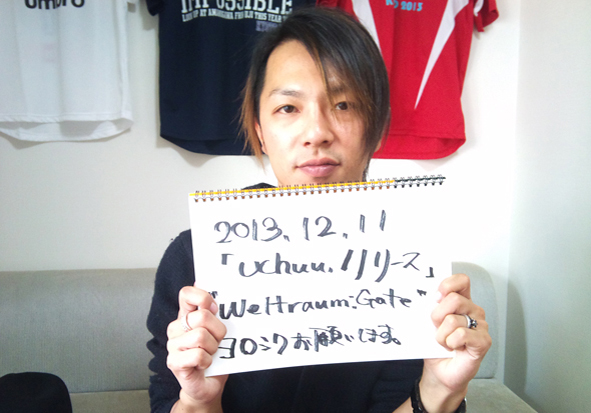 umbro
IMPOSSIBLE
2013
2013.12.11
「uchuu.リリース」
"Weltraum:Gate"
ヨロシクお願いします。